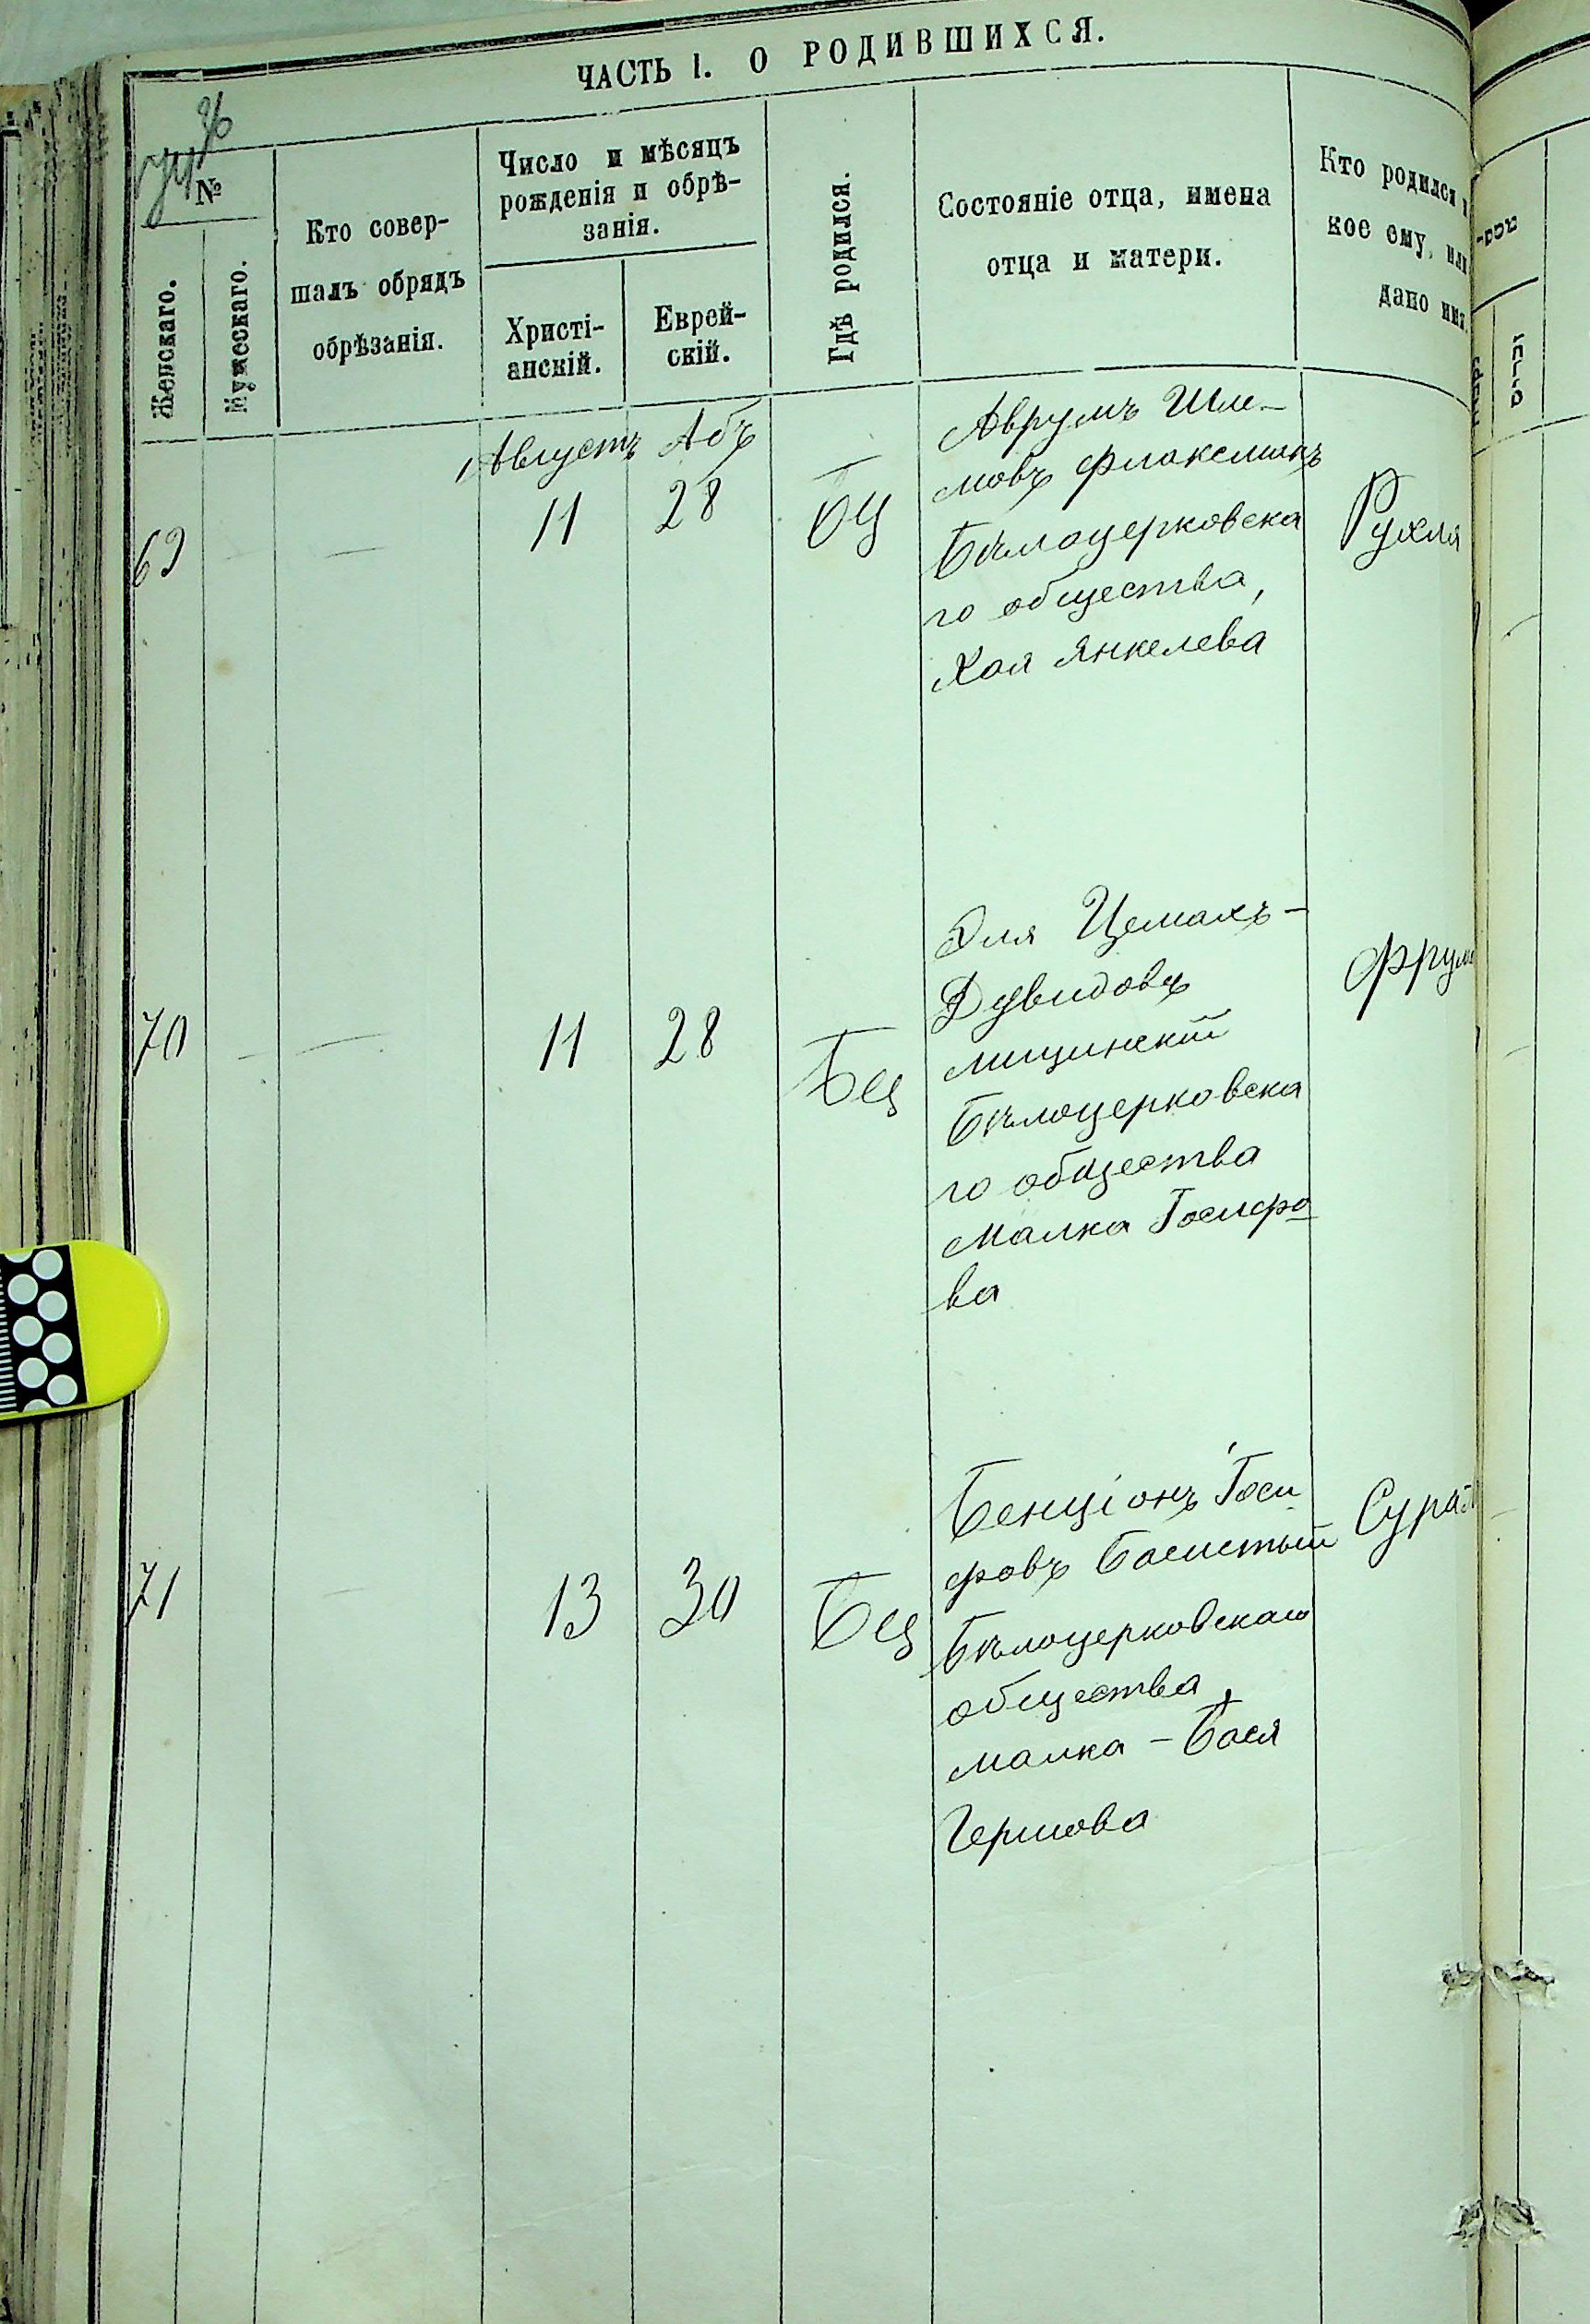 ЧАСТЬ I. О РОДИВШИХСЯ.
№
Женскаго.
Мужескаго.
Кто совер-
шалъ обрядъ
обрѣзанія.
Число и мѣсяцъ
рожденія и обрѣ-
занія.
Христі-
анскій.
Еврей-
скій.
Гдѣ родился.
Состояніе отца, имена
отца и матери.
Кто родился и
кое ему, или
дано имя.
Августъ Абъ
69 — — 11 28 БЦ
Аврумъ Шле-
мовъ Флаксманъ
Бѣлоцерковска
го общества,
Хая Янкелева
Рухля
70 — — 11 28 БЦ
Эля Цемахъ-
Дувидовъ
Бѣлоцерковска
го общества
Малка Іосифо
ва
Фрум
71 — 13 30 БЦ
Бенціонъ Іоси
фовъ Басистый
Бѣлоцерковскаго
общества,
Малка-Бася
Гершова
Сура